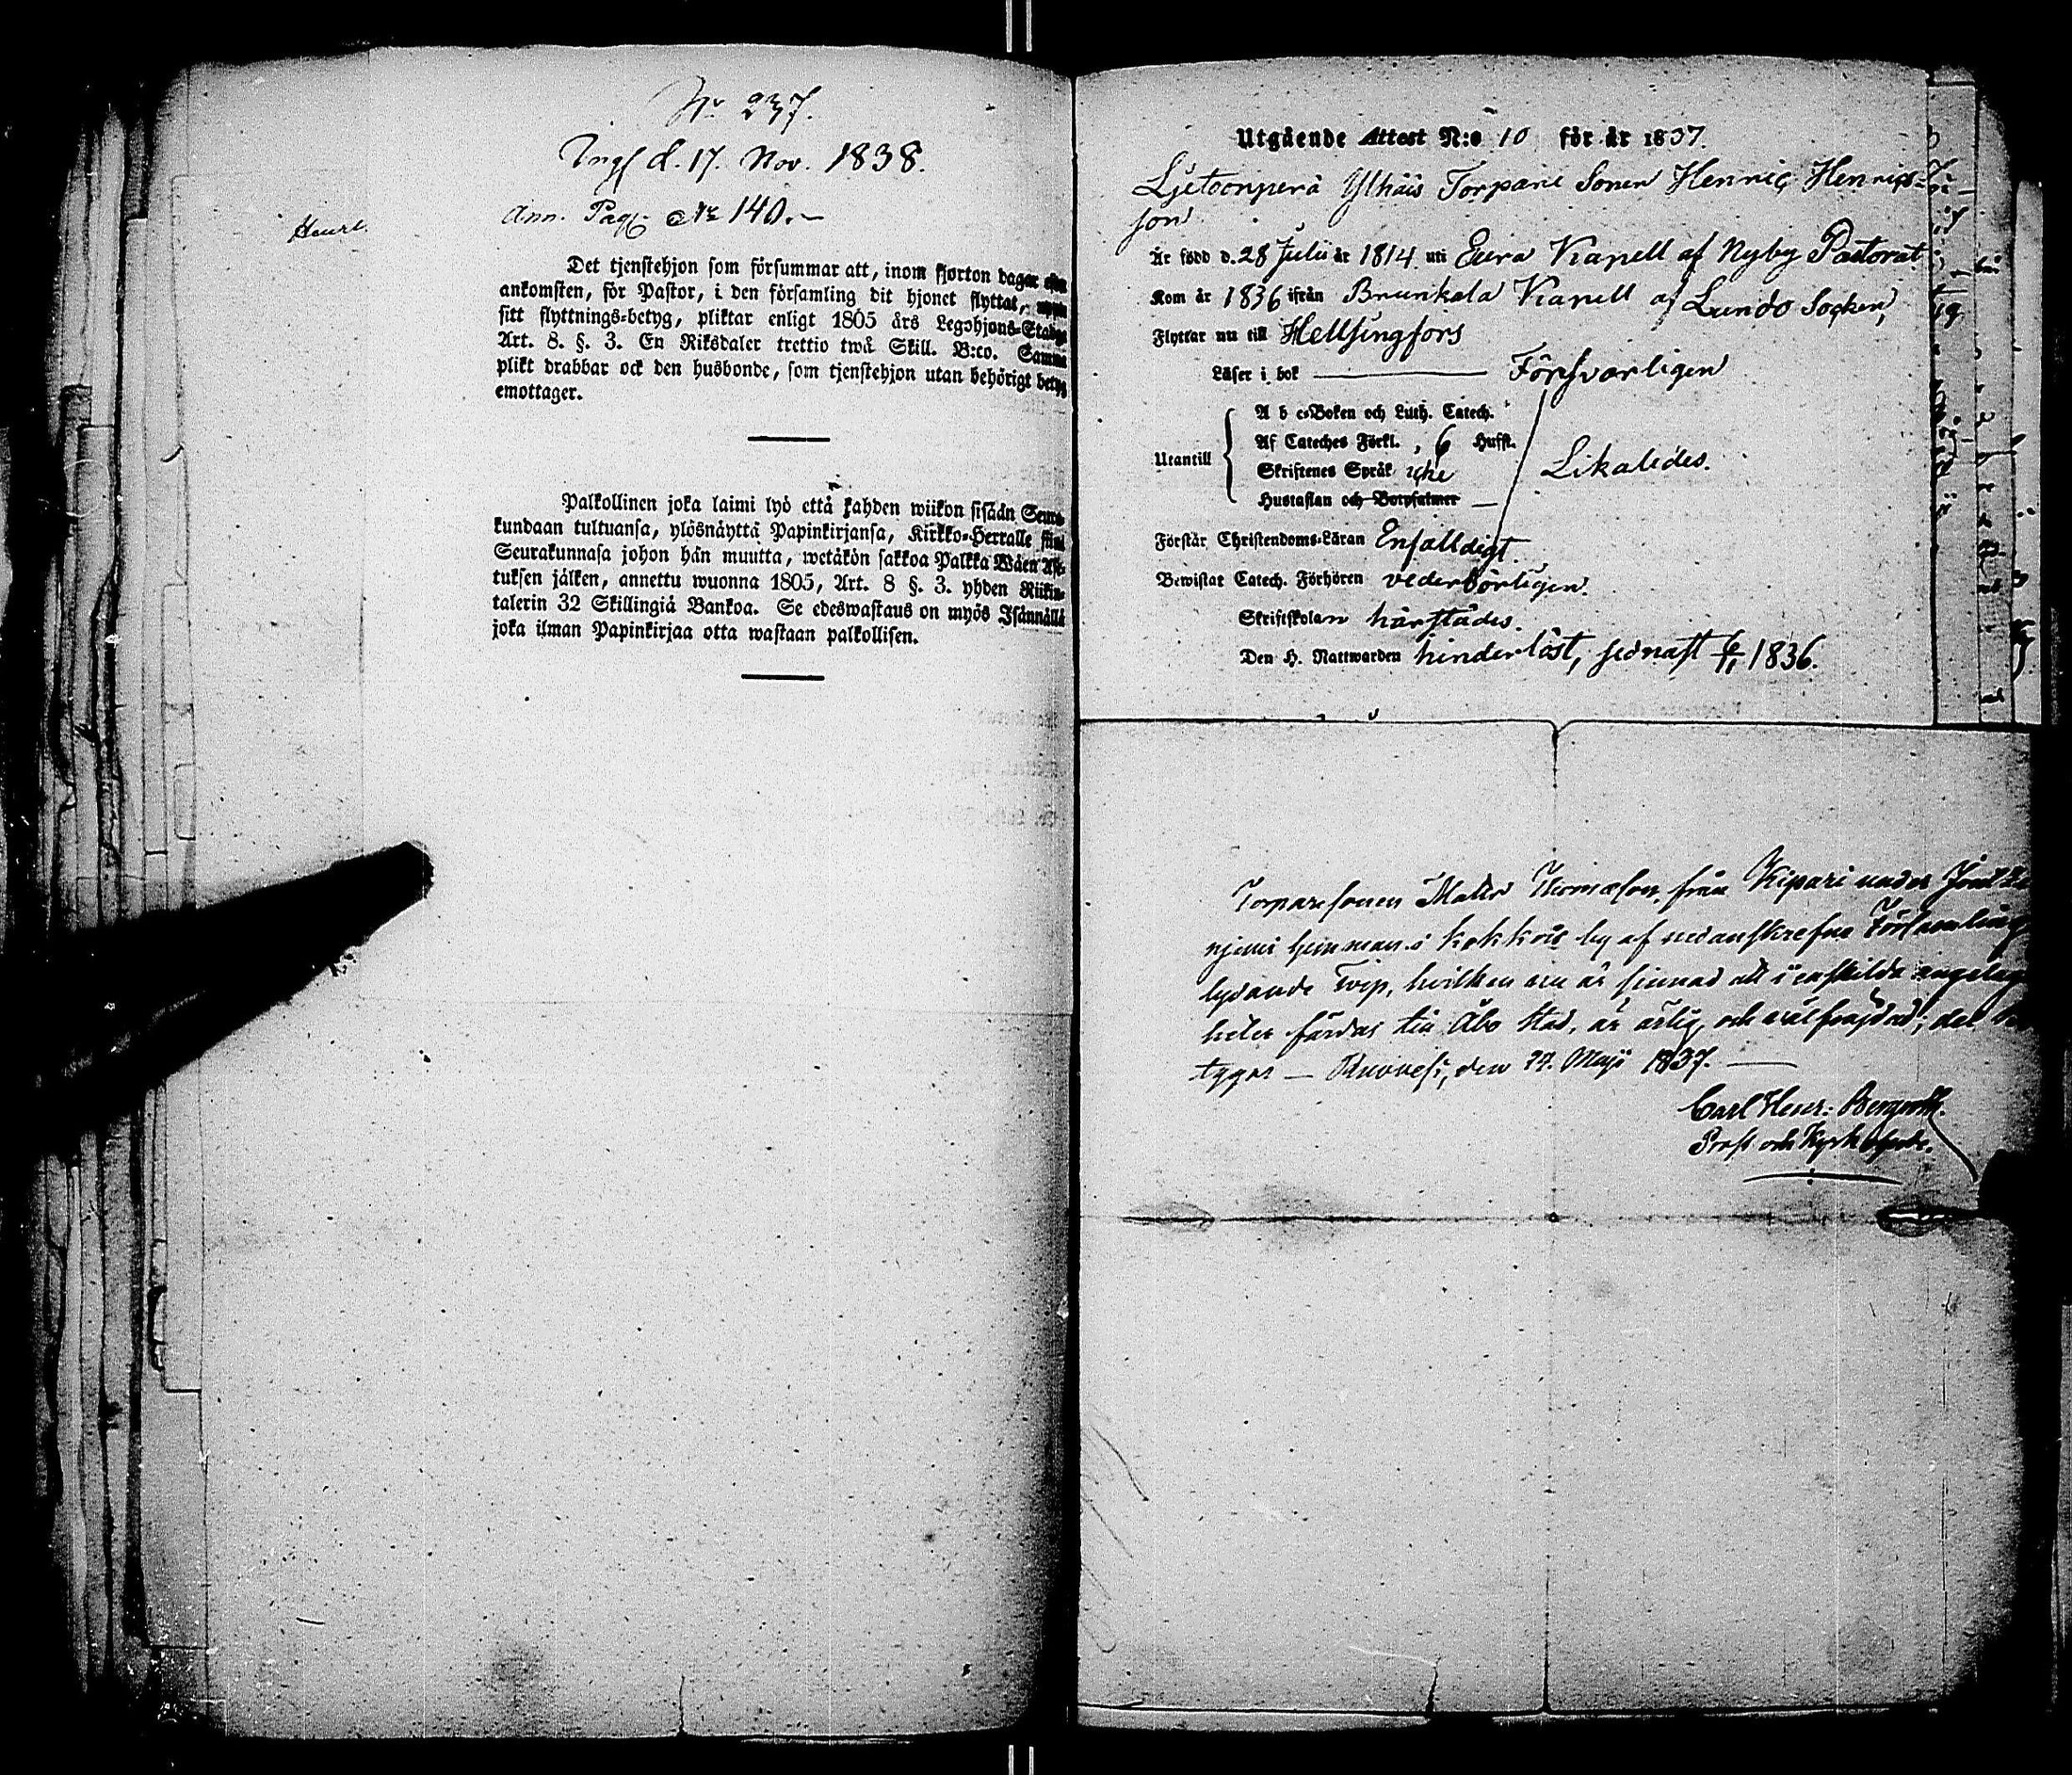 No 237.
Ing. d. 17. Nov. 1838.
Ann. Pag. No 140.
Det tjenstehjon som försummar att, inom fjorton dagar efter
ankomsten, för Pastor, i den församling dit hjonet flyttat,
sitt flyttnings-betyg, pliktar enligt 1805 års Legohjons-Stadga
Art. 8. §. 3. En Riksdaler trettio twå Skill. B:co. Samma
plikt drabbar ock den husbonde, som tjenstehjon utan behörigt betyg
emottager.
Palkollinen joka laimi lyö että kahden wiikon sisään Seura-
kundaan tultuansa, ylösnäyttä Papinkirjansa, Kirkko-Herralle siinä
Seurakunnasa johon hän muutta, wetäkön sakkoa Palkka Wäen Ase-
tuksen jälken, annettu wuonna 1805, Art. 8 §. 3. yhden Riikin-
talerin 32 Skillingiä Bankoa. Se edeswastaus on myös Isännällä
joka ilman Papinkirjaa otta wastaan palkollisen.
Utgående Attest N:o 10 för år 1837.
Torpare Sonen Henric Henrics-
son
Är född d. 28 Julii år 1814 uti Eura Kapell af Nyby Pastorat
Kom år 1836 ifrån Brunkala Kapell af Lundo Socken,
Flyttar nu till Hellsingfors
Läser i bok Försvarligen
A b c-Boken och Luth. Catech.
Af Cateches Förkl., 6 Hufst.
Utantill
Skriftenes Språk icke
Likaledes.
Hustaflan och Botpsalmer
Förstår Christendoms-Läran Enfalldigt
Bewistat Catech. Förhören vederbörligen.
Skriftskolan härstädes.
Den H. Nattwarden hinderlöst, sednast 6/11 1836.
Torparesonen Matts Thomasson, från Kipari under
hemman i Kokkois by af nedanskrefne Församling
lydande Torp, hvilken nu är sinnad att i enskilda angelägen
heter färdas till Åbo stad, är ärlig och välfrejdad; det be
tygar — Ruovesi, den 24. Maji 1837.
Carl Henr: Bergroth.
Prost och Kyrkoherde.